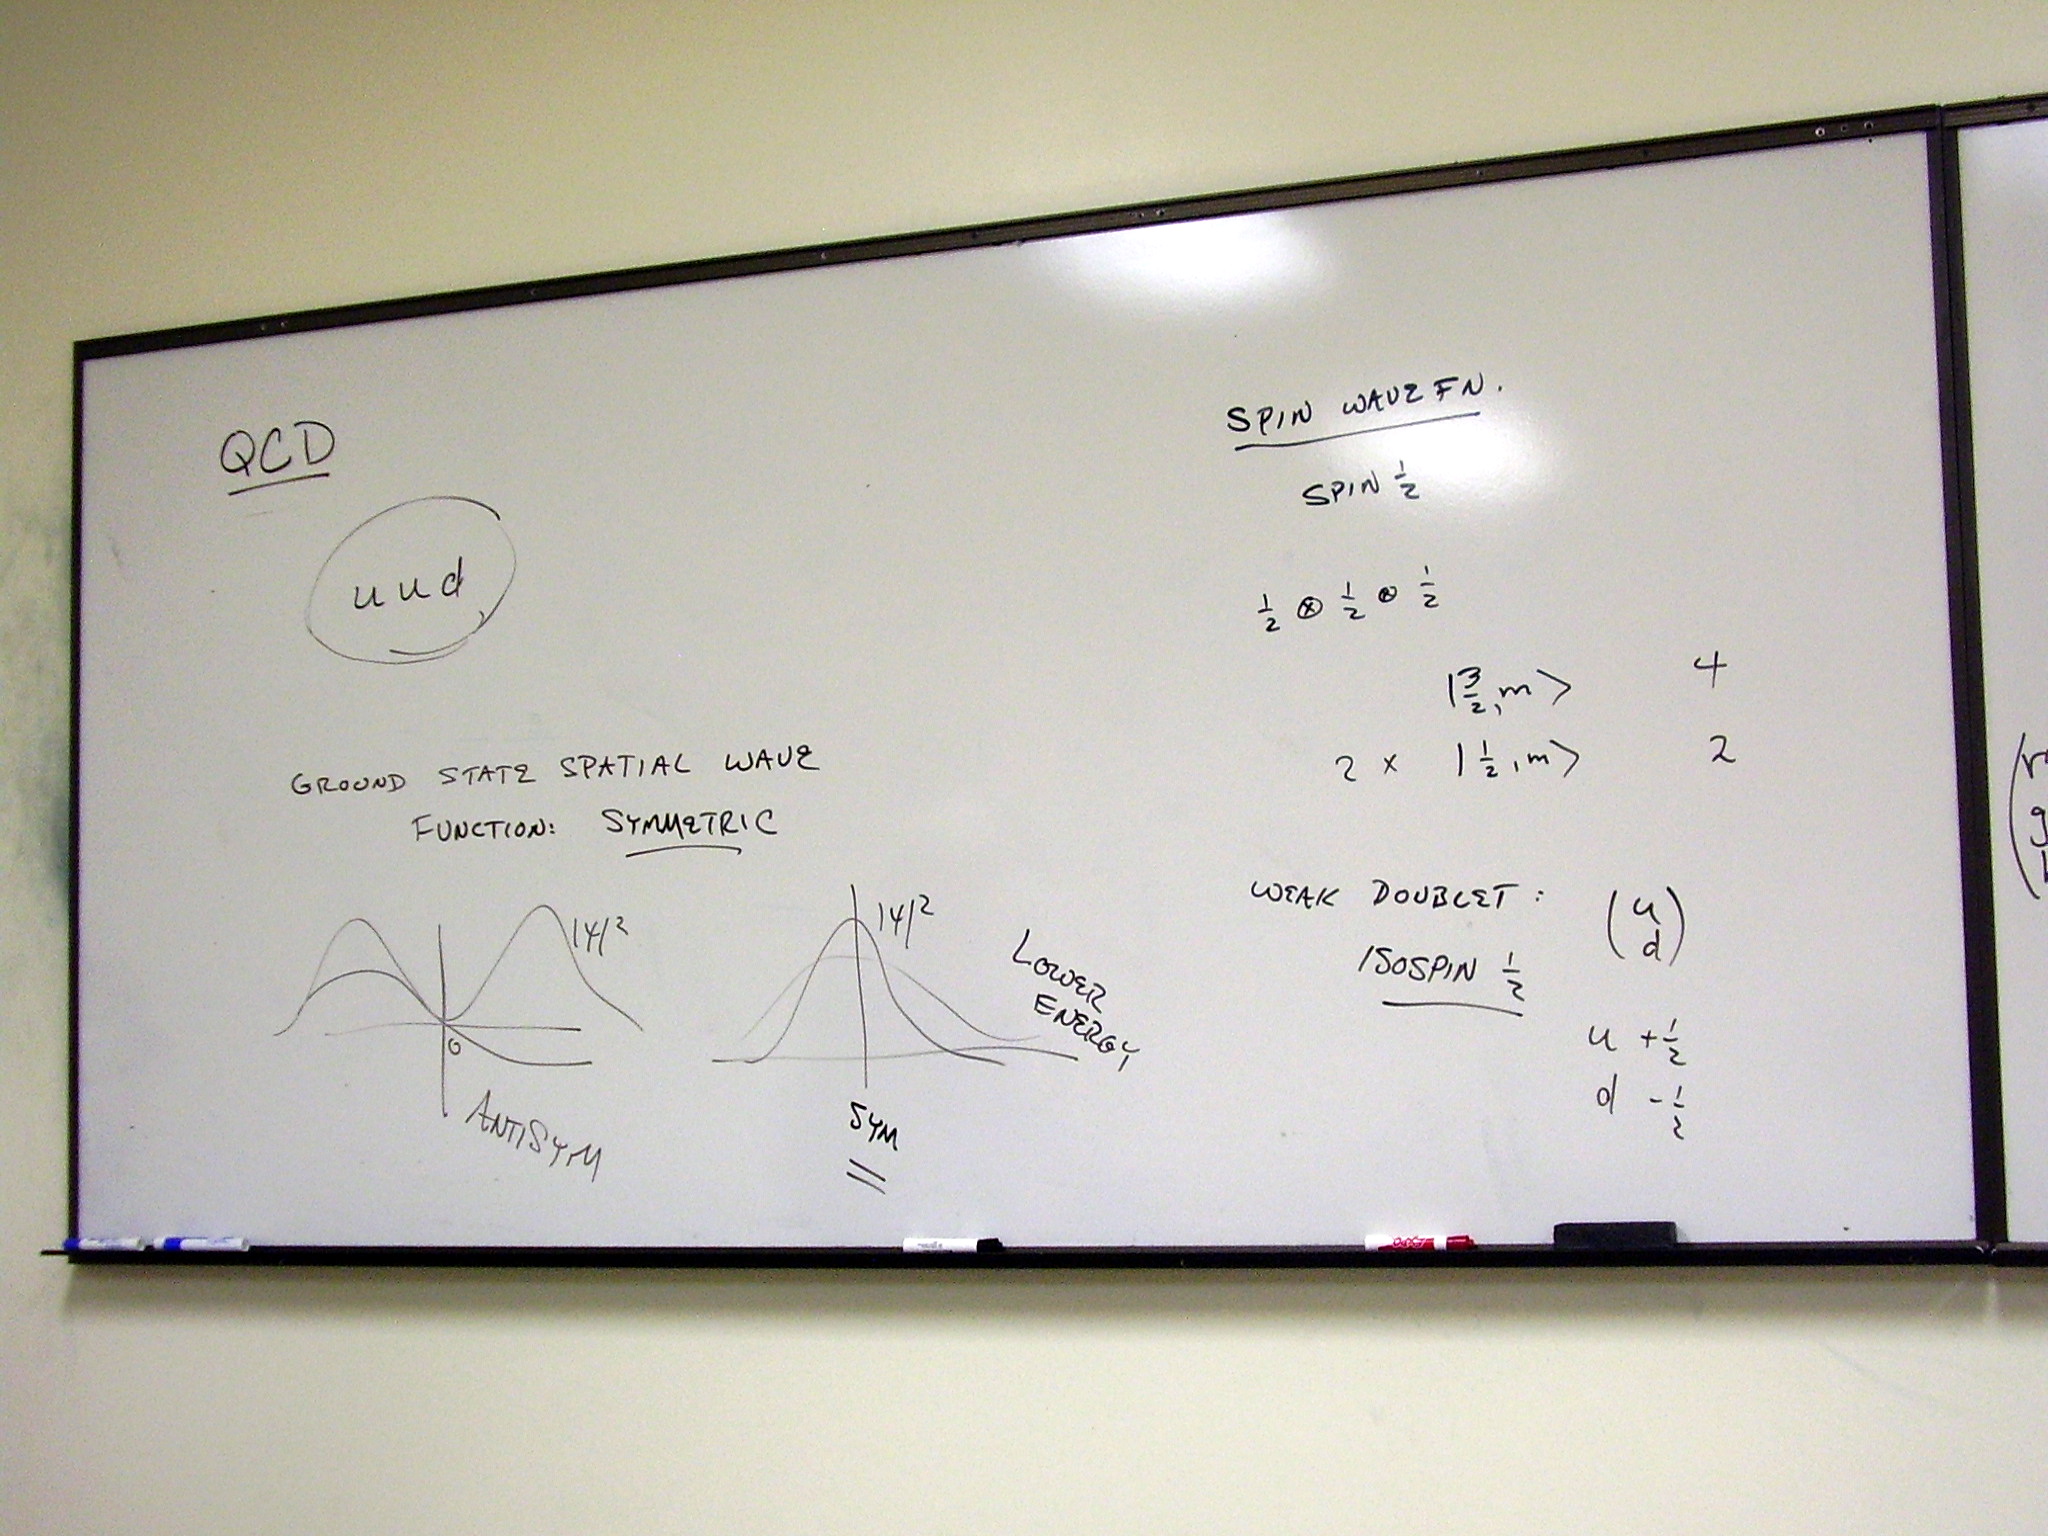 QCD
uud
GROUND STATE SPATIAL WAVE
FUNCTION: SYMMETRIC
|ψ|²
0
ANTISYM
|ψ|²
LOWER
ENERGY
SYM
SPIN WAVE FN.
SPIN 1/2
1/2 ⊗ 1/2 ⊗ 1/2
|3/2, m> 4
2 × |1/2, m> 2
WEAK DOUBLET: (u d)
ISOSPIN 1/2
u +1/2
d -1/2
(r
g